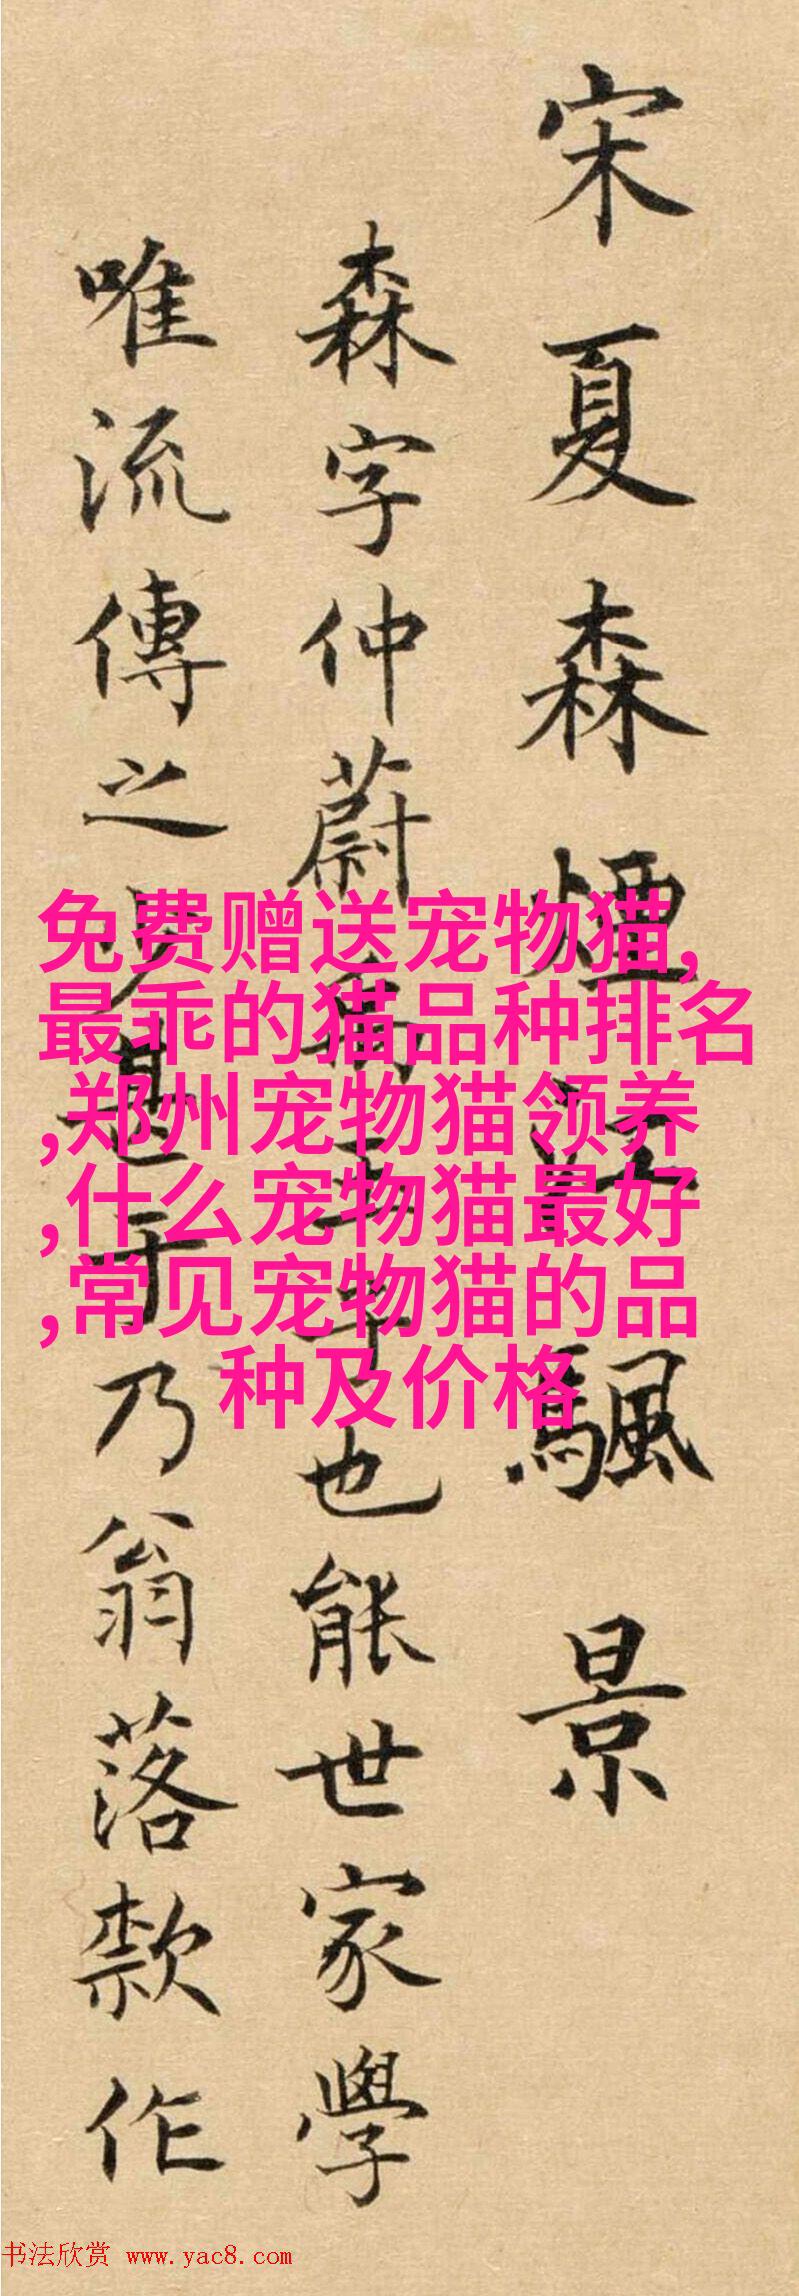 宋夏森煙江颿景
森字仲蔚 也能世家學
唯流傳之少甚于乃翁落款作
免费赠送宠物猫,
最乖的猫品种排名
,郑州宠物猫领养
,什么宠物猫最好
,常见宠物猫的品
种及价格
书法欣赏 www.yac8.com